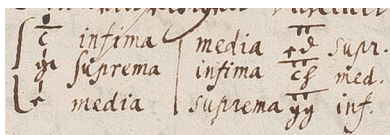 c infima media ed supr.
g suprema infima ch med.
e media suprema gg inf.